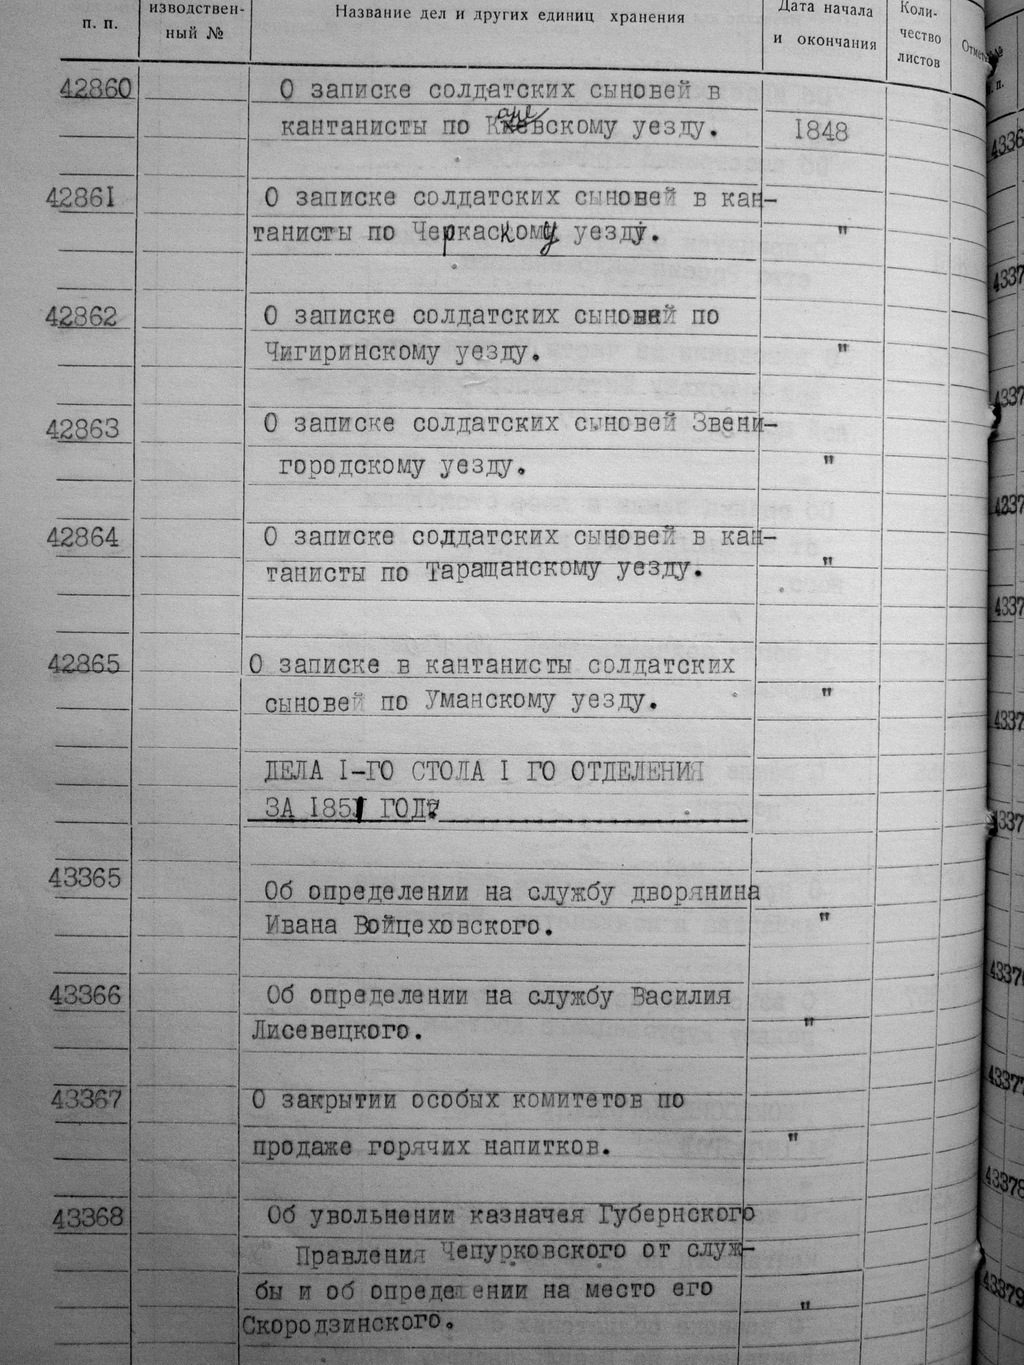 п. п.
изводствен-
ный №
Название дел и других единиц хранения
Дата начала
и окончания
Коли-
чество
листов
42860
О записке солдатских сыновей в
кантанисты по Каневскому уезду.
1848
42861
О записке солдатских сыновей в кан-
танисты по Черкаскому уезду.
"
42862
О записке солдатских сыновей по
Чигиринскому уезду.
"
42863
О записке солдатских сыновей Звени-
городскому уезду.
"
42864
О записке солдатских сыновей в кан-
танисты по Таращанскому уезду.
"
42865
О записке в кантанисты солдатских
сыновей по Уманскому уезду.
"
ДЕЛА I-ГО СТОЛА I ГО ОТДЕЛЕНИЯ
ЗА 1851 ГОД
43365
Об определении на службу дворянина
Ивана Войцеховского.
"
43366
Об определении на службу Василия
Лисевецкого.
"
43367
О закрытии особых комитетов по
продаже горячих напитков.
"
43368
Об увольнении казначея Губернского
Правления Чепурковского от служ-
бы и об определении на место его
Скородзинского.
"